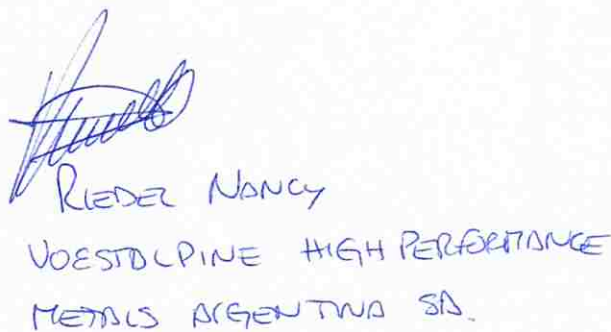 RIEDEL NANCY
VOESTALPINE HIGH PERFORMANCE
METALS ARGENTINA SA.